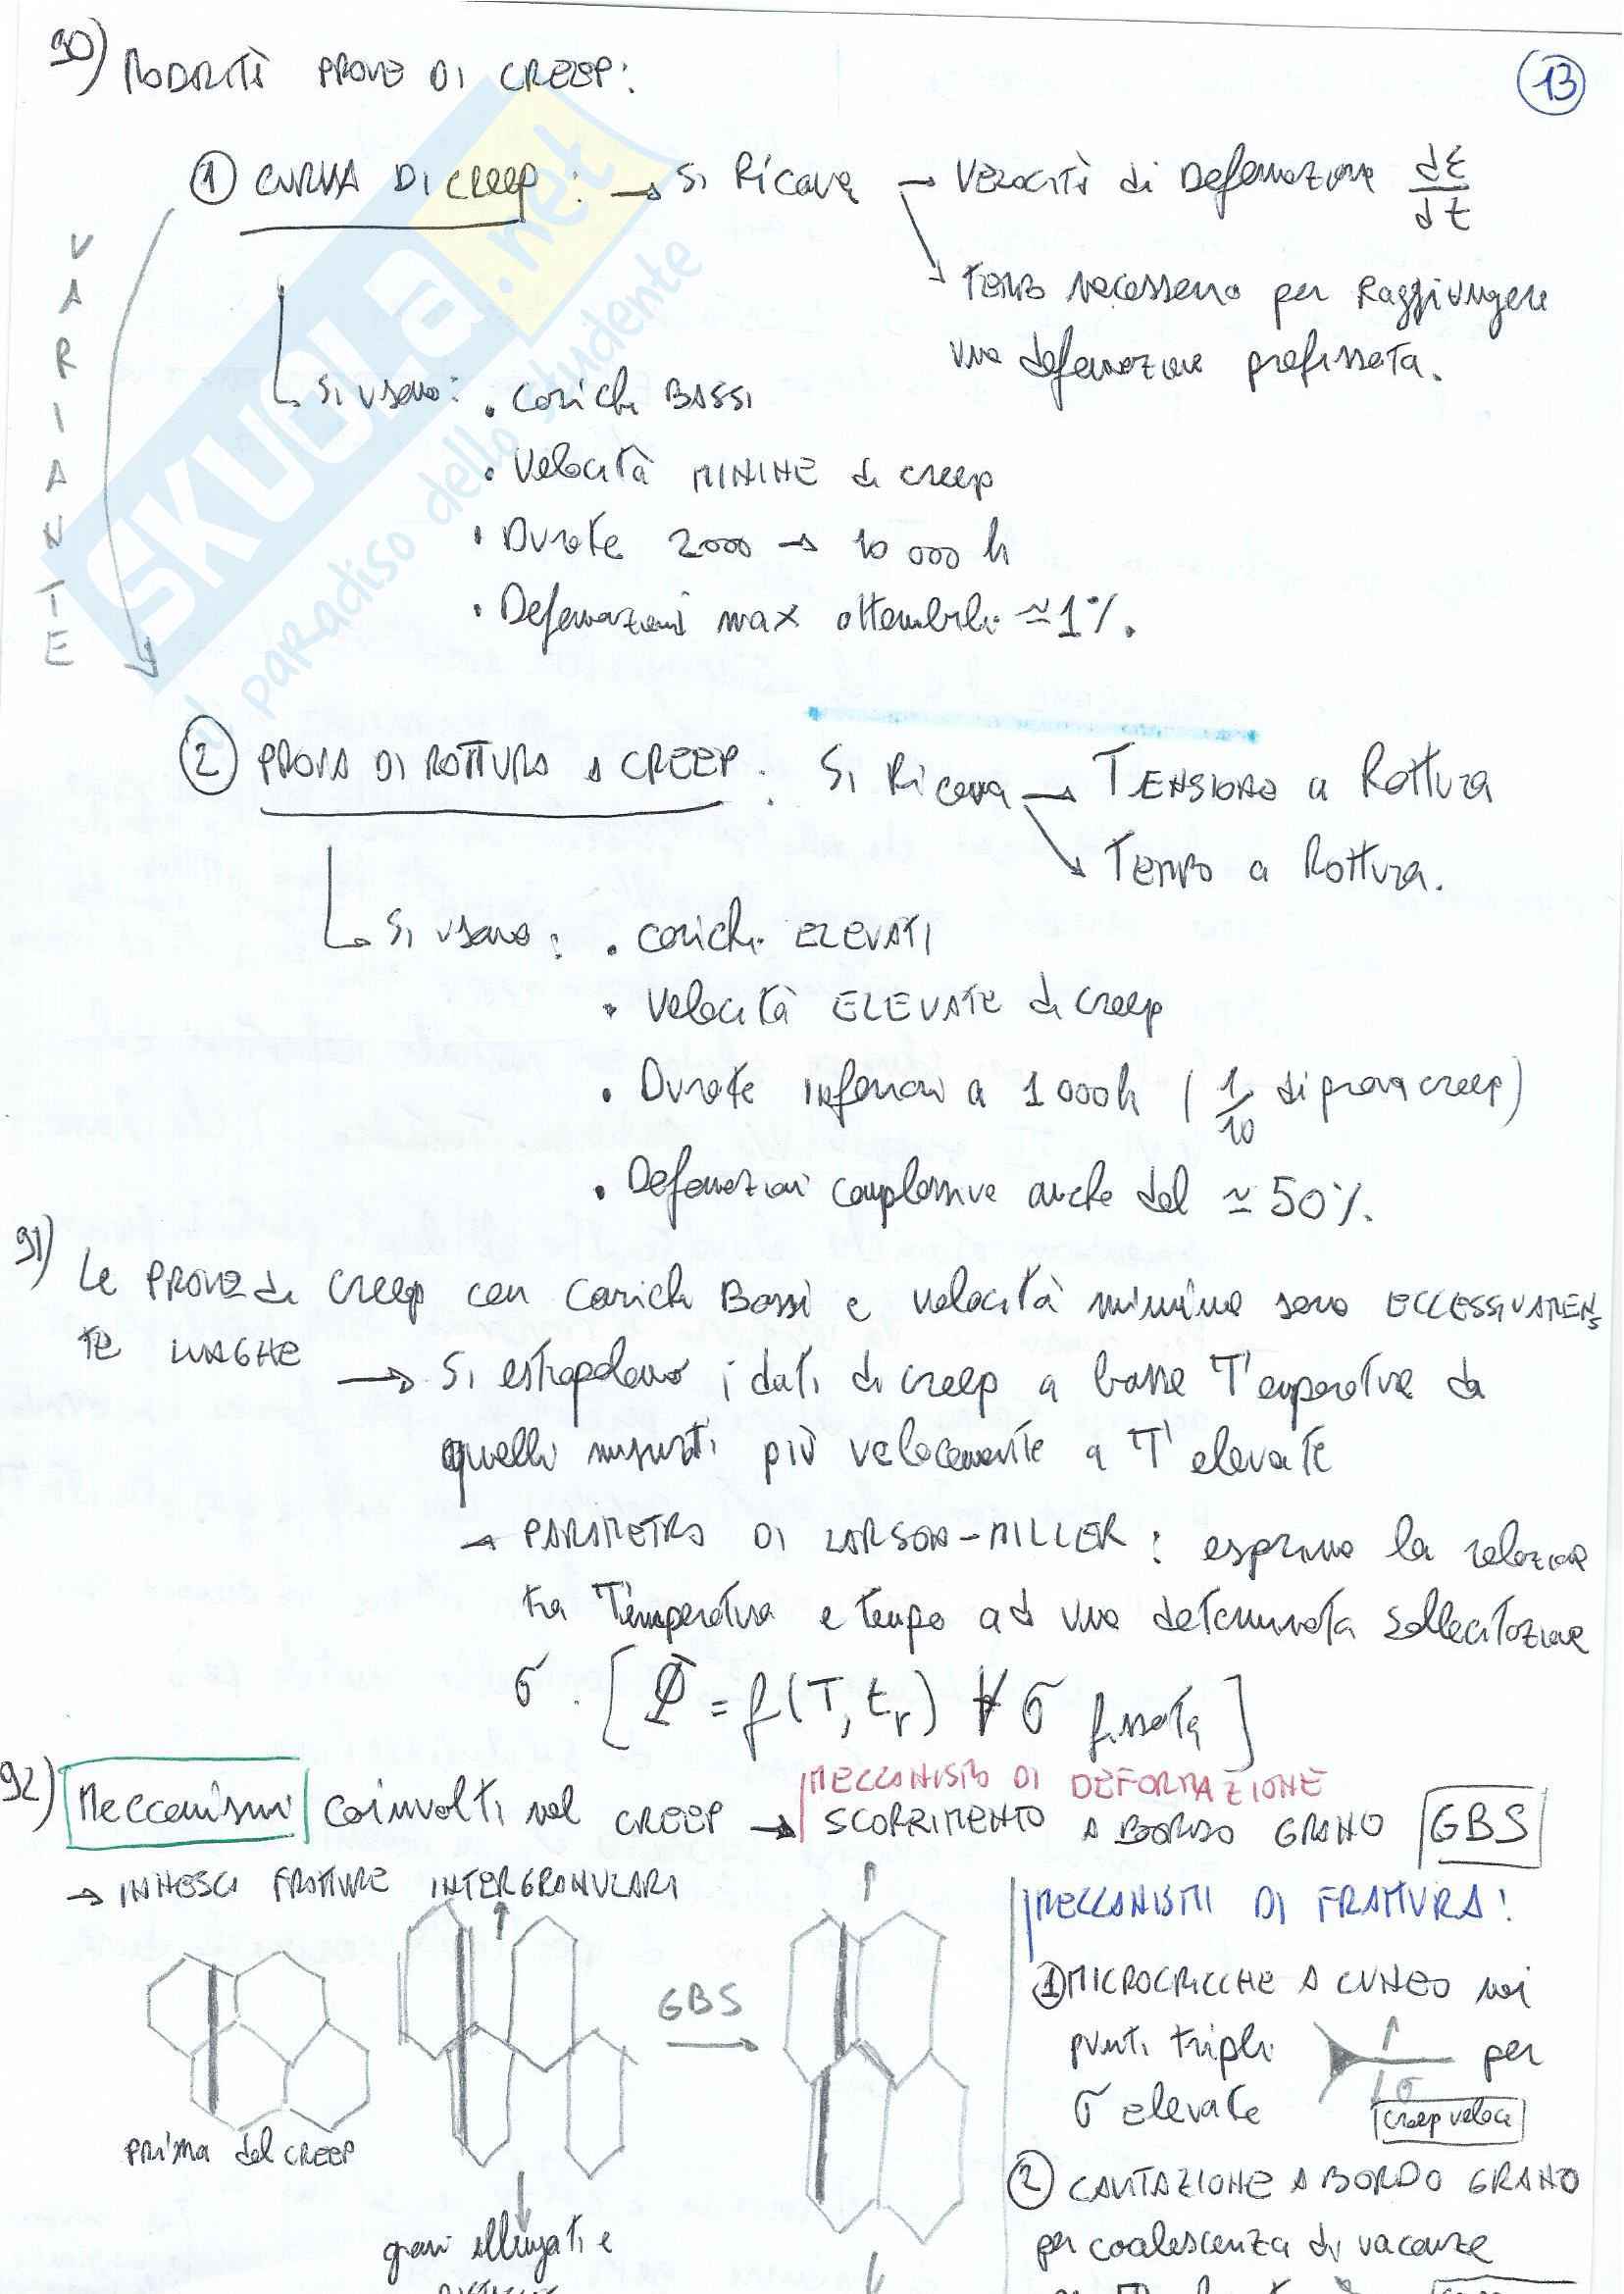 90) MODALITÀ PROVE DI CREEP:
13
① CURVA DI CREEP : → Si Ricava → VELOCITÀ di Deformazione dε/dt
↘ TEMPO necessario per Raggiungere
una deformazione prefissata.
VARIANTE
Si usano: • carichi BASSI
• Velocità MINIME di creep
• Durate 2000 → 10 000 h
• Deformazioni max ottenibili ≃ 1%.
SKUOLA.net
il paradiso dello studente
② PROVA DI ROTTURA A CREEP : Si Ricava → TENSIONE a Rottura
↘ TEMPO a Rottura.
Si usano: • carichi ELEVATI
• Velocità ELEVATE di creep
• Durate inferiori a 1 000h ( 1/10 di prova creep)
• Deformazioni complessive anche del ≃ 50%.
91) Le PROVE di Creep con Carichi Bassi e velocità minime sono ECCESSIVAMEN
TE LUNGHE → Si estrapolano i dati di creep a basse Temperature da
quelli misurati più velocemente a T elevate
→ PARAMETRO DI LARSON-MILLER : esprime la relazione
tra Temperatura e tempo ad una determinata sollecitazione
σ . [ Φ = f(T, tr) ∀ σ fissata ]
92) Meccanismi coinvolti nel CREEP → MECCANISMO DI DEFORMAZIONE
SCORRIMENTO A BORDO GRANO GBS
→ INNESCA FRATTURE INTERGRANULARI
MECCANISMI DI FRATTURA:
① MICROCRICCHE A CUNEO nei
punti tripli per
σ elevate
σ
creep veloci
GBS
prima del CREEP
② CAVITAZIONE A BORDO GRANO
grani allungati e
per coalescenza di vacanze